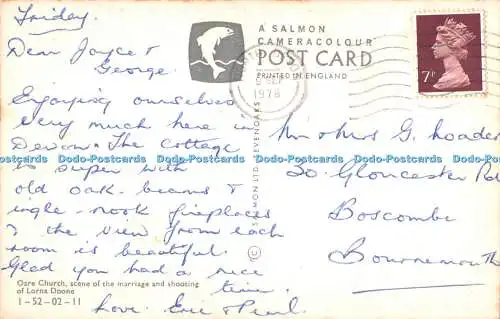 Friday
Dear Joyce &
George.
Enjoying ourselves
very much here in
Devon. The Cottage
is super with
old oak-beams &
ingle-nook fireplaces
& the view from each
room is beautiful.
Glad you had a nice
time.
Love. Eric & Pearl.
Oare Church, scene of the marriage and shooting
of Lorna Doone
1-52-02-11
A SALMON
CAMERACOLOUR
POST CARD
PRINTED IN ENGLAND
1978
7P
J. SALMON LTD. SEVENOAKS
©
Mr & Mrs G. Loader
20. Gloucester Rd
Boscombe
Bournemouth
Dodo-Postcards Dodo-Postcards Dodo-Postcards Dodo-Postcards Dodo-Postcards Dodo-Postcards